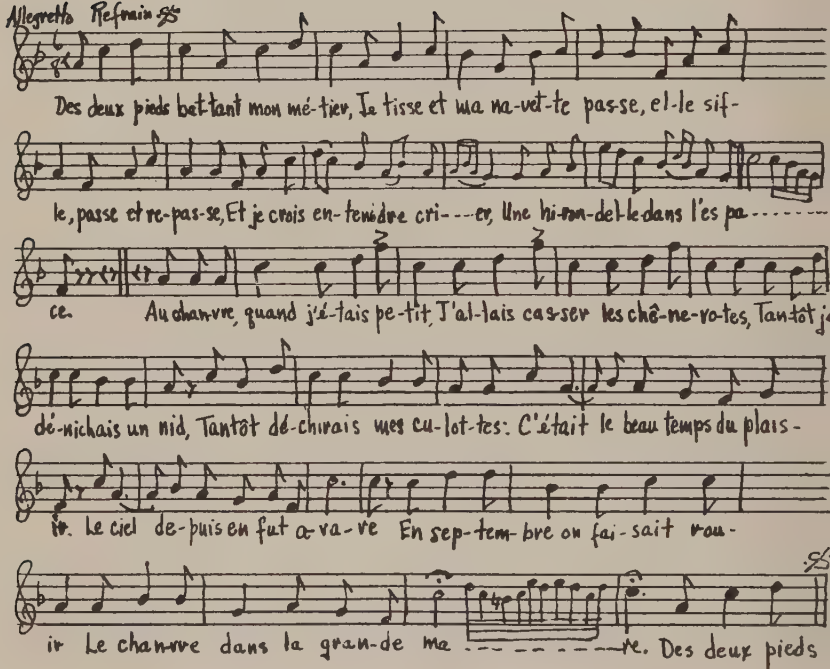 Allegretto Refrain
6
8
Des deux pieds bat-tant mon mé-tier, Je tisse et ma na-vet-te pas-se, el-le sif-
le, passe et re-pas-se, Et je crois en-tendre cri----er, Une hi-ron-del-le dans l'es pa--------
ce. Au chanvre, quand j'é-tais pe-tit, J'al-lais cas-ser les chê-ne-vo-tes, Tan-tôt je
dé-nichais un nid, Tantôt dé-chirais mes cu-lot-tes: C'était le beau temps du plais-
ir. Le ciel de-puis en fut a-va-re En sep-tem-bre on fai-sait rou-
ir Le chanvre dans la gran-de ma ------------re. Des deux pieds